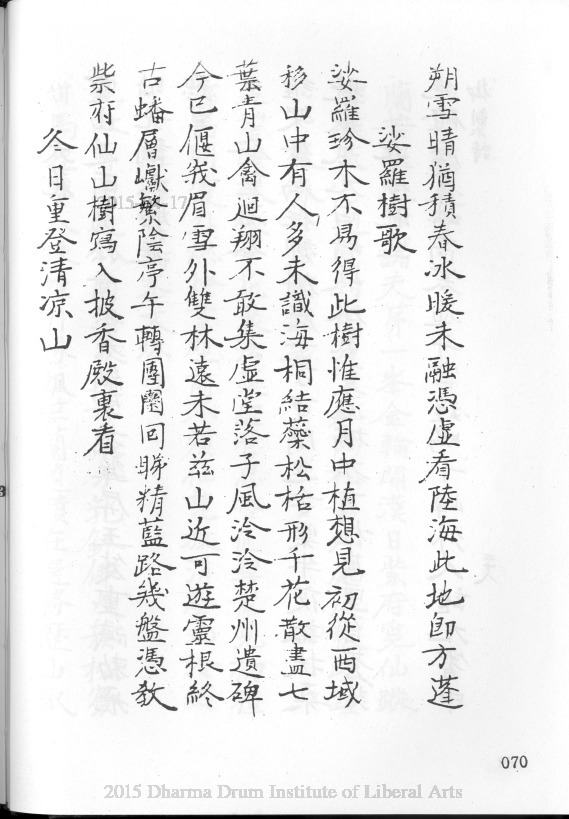 朔雪晴猶積春冰暖未融憑虛看陸海此地即方蓬
娑羅樹歌
娑羅珍木不易得此樹惟應月中植想見初從西域
移山中有人多未識海桐結蘂松栝形千花散盡七
葉青山禽迴翔不敢集虛堂落子風泠泠楚州遺碑
今已偃峩眉雪外雙林遠未若茲山近可遊靈根終
古蟠層巘繁陰亭午轉團圞回睇精藍路幾盤憑教
紫府仙山樹寫入披香殿裏看
冬日重登清凉山
070
2015 Dharma Drum Institute of Liberal Arts